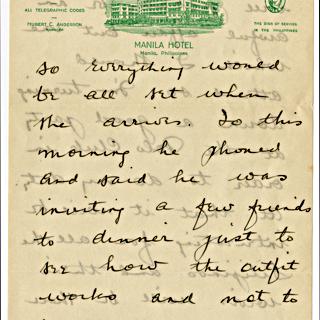 ALL TELEGRAPHIC CODES
HUBERT C. ANDERSON
MANILA HOTEL
Manila, Philippines
THE SIGN OF SERVICE
IN THE PHILIPPINES
so everything would
be all set when
she arrives. So this
morning he phoned
and said he was
inviting a few friends
to dinner just to
see how the outfit
works and not to